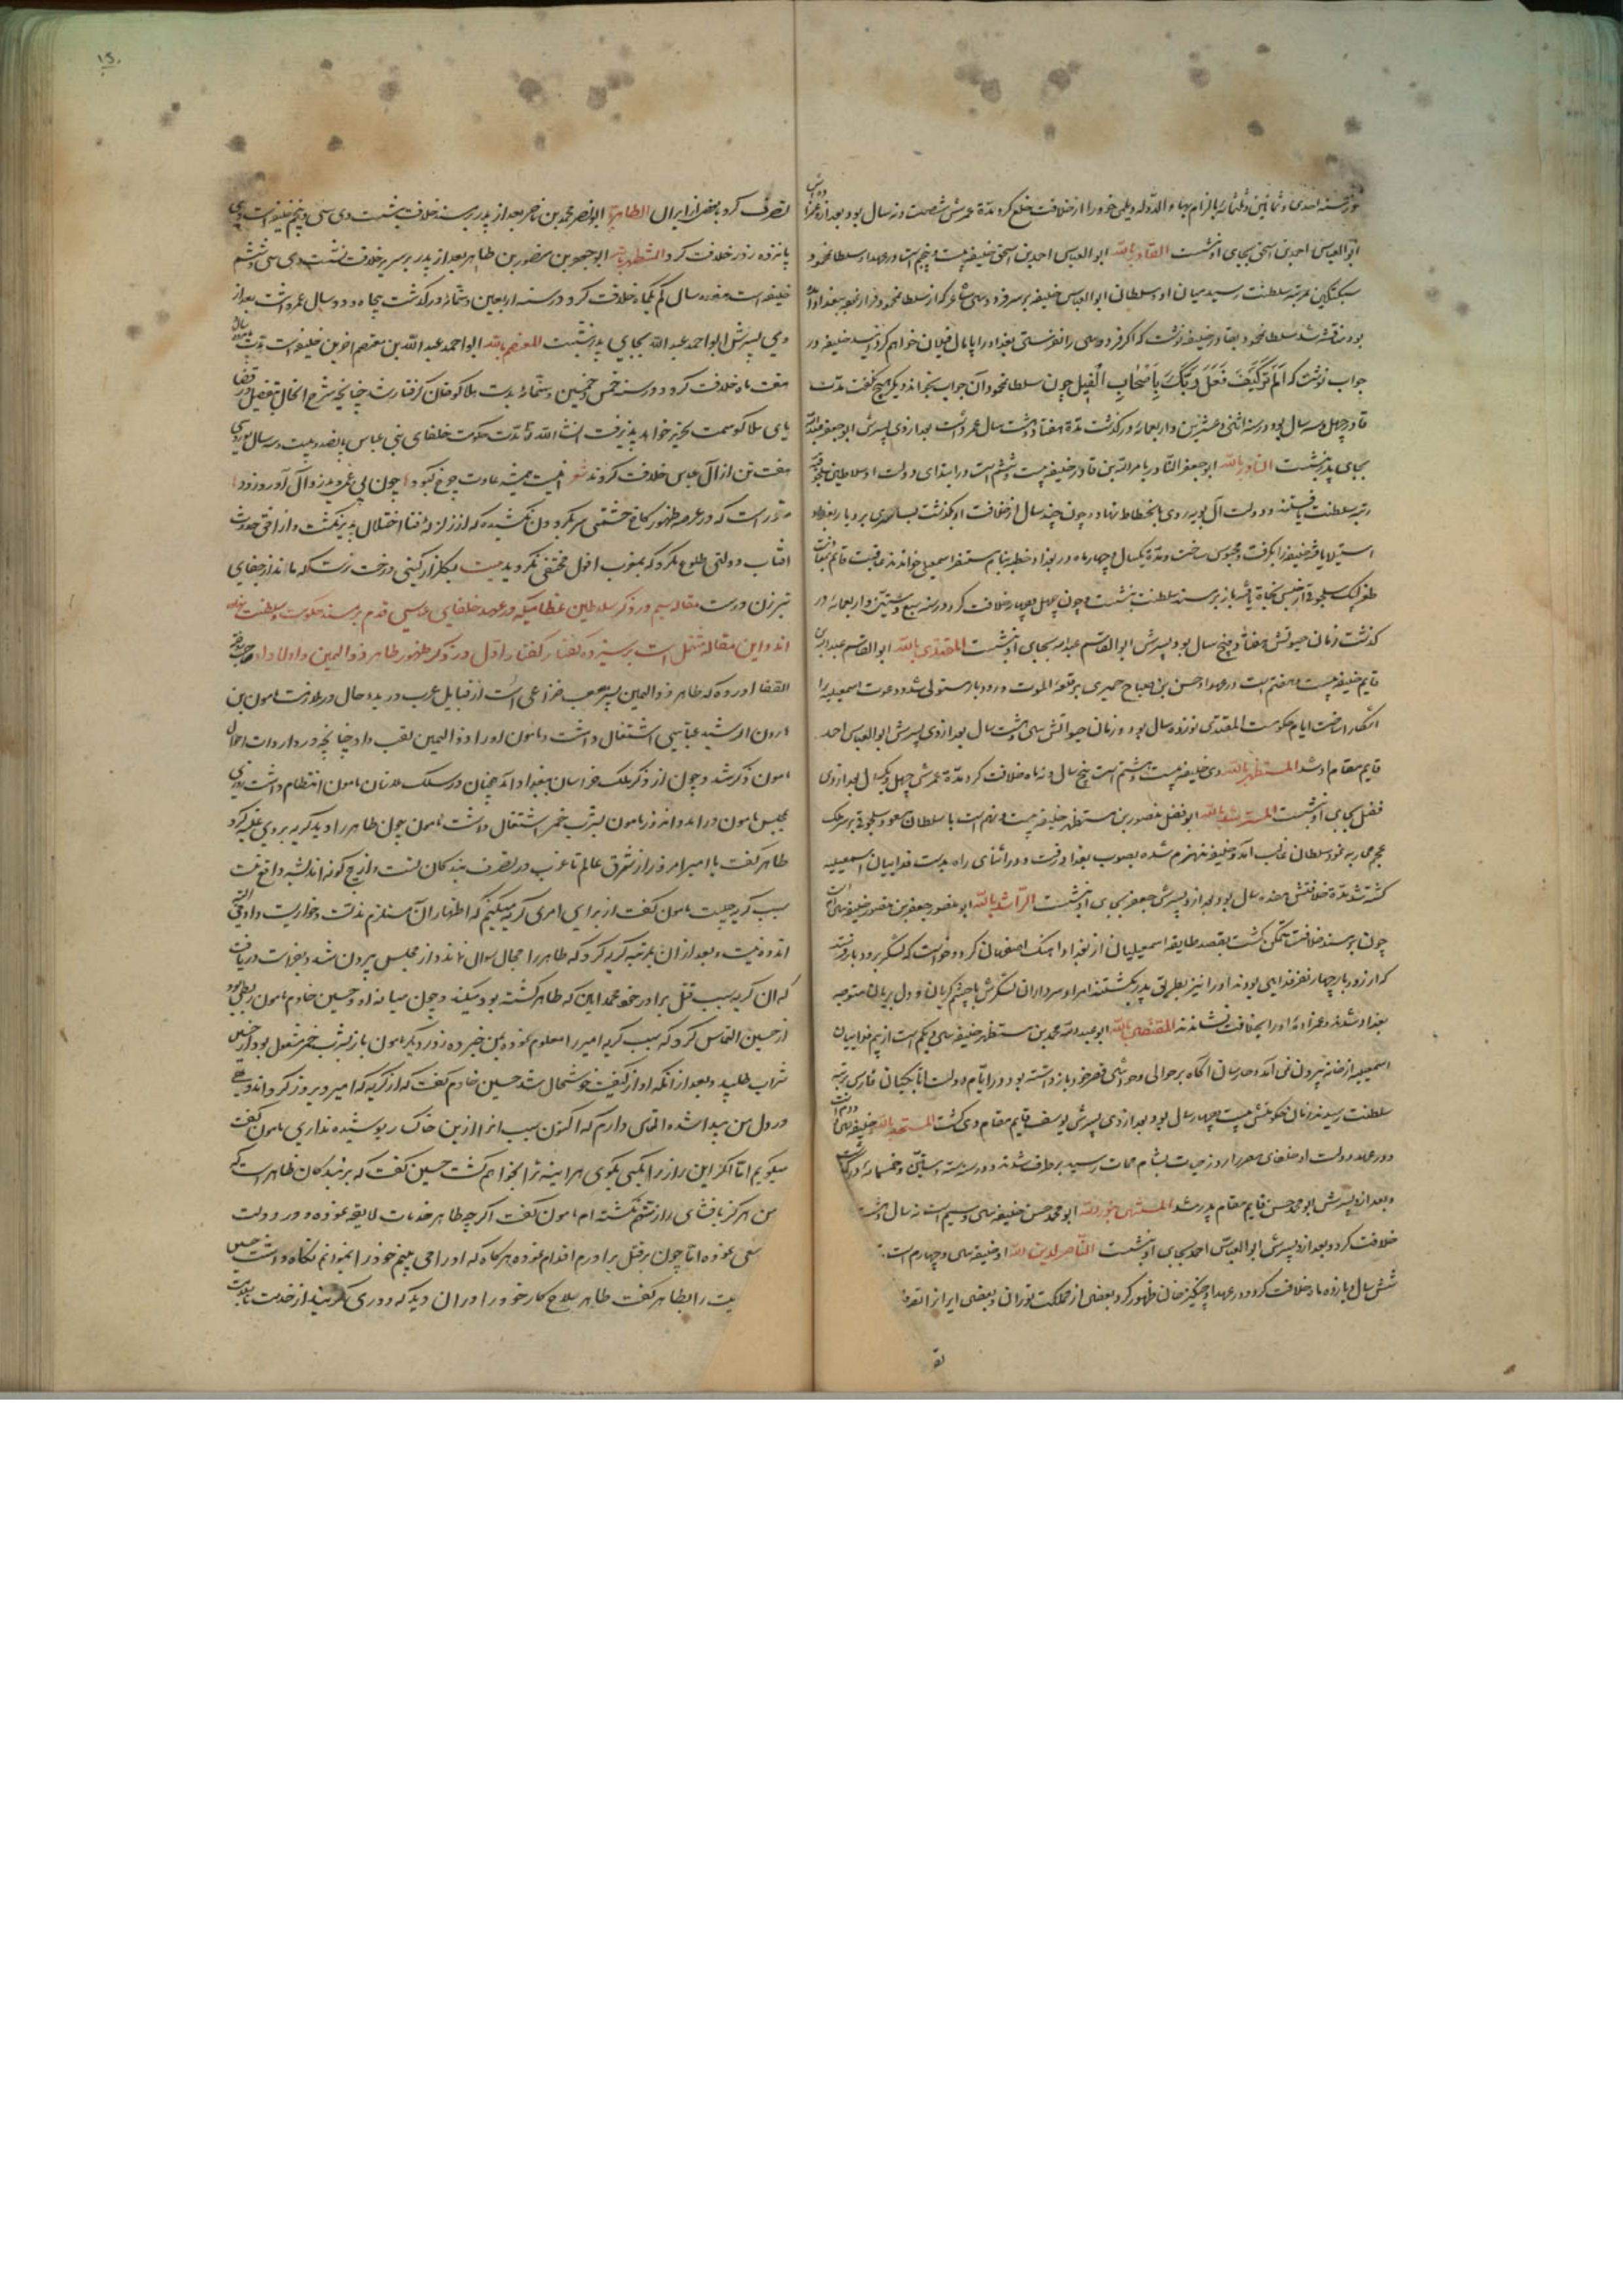 در سنه احدی و ثمانین و ثلثمائه بالزام بهاء الدوله دیلمی خود را از خلافت خلع کرد مدة عمرش شصت و نه سال بود بعد ازو
ابو العباس احمد بن اسحق بجای او نشست القادر بالله ابو العباس احمد بن اسحق خلیفه بیست و پنجم است در عهد او سلطان محمود
سبکتکین بمرتبه سلطنت رسید میان او و سلطان ابو العباس خلیفه بر سر فردوسی شاعر که از سلطان محمود فرار نموده ببغداد آمده
بود مناقشه شد سلطان محمود بقادر خلیفه نوشت که اگر فردوسی را نفرستی بغداد را پایمال فیلان خواهم کردانید خلیفه در
جواب نوشت که اَلَم تَرَ کَیفَ فَعَلَ رَبُّکَ بِاَصْحابِ الْفِیل چون سلطان محمود آن جواب بخواند دیگر هیچ نگفت مدت
قادر چهل و سه سال بود در سنه اثنی و عشرین و اربعمائه درگذشت مدة هفتاد و هشت سال عمر داشت بعد از وی پسرش ابو جعفر عبد الله
بجای پدر نشست القادر بالله ابو جعفر القادر بامر الله بن قادر خلیفه بیست و ششم است در ابتدای دولت او سلاطین سلجوقیه
رتبه سلطنت یافتند و دولت آل بویه روی بانحطاط نهاد و چون چند سال از خلافت او بگذشت بساسیری بر دیار بغداد
استیلا یافته خلیفه را بگرفت و محبوس ساخت و مدة یکسال و چهار ماه در بغداد خطبه بنام مستنصر اسمعیلی خواندند عاقبت قایم بمعاونت
طغرلبک سلجوقی از حبس نجاة یافته باز بر مسند سلطنت بنشست و چون چهل و چهار سال خلافت کرد در سنه سبع و ستین و اربعمائه در
کذشت زمان حیوتش هفتاد و پنج سال بود پسرش ابو القاسم عبد الله بجای او نشست المقتدی بالله ابو القاسم عبد الله بن
قایم خلیفه بیست و هفتم است در عهد او حسن بن صباح حمیری بر قلعه الموت و رودبار مستولی شد و دعوت اسمعیلیه را
اشکار ساخت ایام حکومت المقتدی نوزده سال بود و زمان حیواتش سی و هشت سال بعد از وی پسرش ابو العباس احمد
قایم مقام او شد المستظهر بالله وی خلیفه بیست و هشتم است پنج سال و نه ماه خلافت کرد مدة عمرش چهل و یکسال بعد از وی
فضل بجای او نشست المسترشد بالله ابو فضل منصور بن مستظهر خلیفه بیست و نهم است با سلطان مسعود سلجوقی بر سر ملک
عجم محاربه نمود سلطان غالب آمد و خلیفه منهزم شده بصوب بغداد رفت و در اثنای راه بدست فداییان اسمعیلیه
کشته شد مدة خلافتش هفده سال بود بعد ازو پسرش جعفر بجای او نشست الراشد بالله ابو منصور جعفر بن منصور خلیفه سی ام است
چون بر مسند خلافت متمکن گشت بقصد طایفه اسمعیلیان از بغداد اهنک اصفهان کرد و خواست که لشکر برودبار فرستد
که از رودبار چهار نفر فدایی بودند او را نیز بطریق پدر بکشتند امرا و سرداران لشکرش با چشم گریان و دل بریان متوجه
بغداد شدند و عمزاده او را بخلافت نشاندند المقتضی بالله ابو عبد الله محمد بن مستظهر خلیفه سی و یکم است از بیم فداییان
اسمعیلیه از خانه بیرون نمی آمد و حارسان اگاه بر حوالی و حواشی قصر خود باز داشته بود در ایام دولت اتابکیان فارس برتبه
سلطنت رسیدند زمان حکومتش بیست و چهار سال بود بعد از وی پسرش یوسف قایم مقام وی گشت المستنجد بالله خلیفه سی و دوم است
در عهد دولت او خلفای مصر را روز حیات بشام ممات رسید بر طرف شدند و در سنه ست و ستین و خمسمائه درگذشت
و بعد ازو پسرش ابو محمد حسن قایم مقام پدر شد المستضی بنور الله ابو محمد حسن خلیفه سی و سیم است نه سال و هشت
خلافت کرد و بعد ازو پسرش ابو العباس احمد بجای او نشست الناصر لدین الله او خلیفه سی و چهارم است
شش سال و یازده ماه خلافت کرد و در عهد او چنکیز خان ظهور کرد بعضی از مملکت توران و بعضی ایران را تصرف
تصرف کرد و بعضی از ایران الظاهر ابو نصر محمد بن ناصر بعد از پدر بر مسند خلافت نشست وی سی و پنجم خلیفه است
پانزده روز خلافت کرد المستنصر بالله ابو جعفر بن منصور بن طاهر بعد از پدر بر سریر خلافت نشست وی سی و ششم
خلیفه است هفده سال کم یکماه خلافت کرد و در سنه اربعین و ستمائه درگذشت پنجاه و دو سال عمر داشت بعد از
وی پسرش ابو احمد عبد الله بجای پدر نشست المعتصم بالله ابو احمد عبد الله بن معتصم اخرین خلیفه است مدت
هفت ماه خلافت کرد و در سنه خمس و خمسین و ستمائه بدست هلاکو خان گرفتار شد چنانچه شرح انحال بتفصیل در قضا
یای هلاکو سمت تحریر خواهد پذیرفت انشاء الله تعا مدت حکومت خلفای بنی عباس پانصد و بیست و سه سال بود و سی
هفت تن از آل عباس خلافت کردند شعر اینست همیشه عادت چرخ کبود چون بی غمی بدید زوال آورد زود
مقرر است که در عرصه ظهور کاخ حشمتی سر بگردون نکشید که از زلزله فنا اختلال پذیر نکشت و از افق حدوث
افتاب دولتی طلوع نکرد که بمغرب افول مختفی نکردید بیت بگلزار گیتی درختی نرست که ماند از جفای
تبرزن درست مقاله سیم در ذکر سلاطین عظام که در عهد خلفای عباسی قدم بر مسند حکومت و سلطنت نهاده
اند و این مقاله مشتمل است بر سیزده گفتار گفتار اول در ذکر ظهور طاهر ذو الیمین و اولاد او صاحب تاریخ
القضا اورده که طاهر ذو الیمین بن مصعب خزاعی است از قبایل عرب در بدو حال در ملازمت مامون بن
هارون الرشید عباسی اشتغال داشت و مامون او را ذو الیمین لقب داد چنانچه در واردات احوال
مامون ذکر شد و چون از ذکر ملک خراسان ببغداد آمد همچنان در سلک ملازمان مامون انتظام داشت روزی
بمجلس مامون در امد و آنروز مامون بشرب خمر اشتغال داشت مامون چون طاهر را دید گریه بر وی غلبه کرد
طاهر گفت یا امیر امروز از مشرق عالم تا مغرب در تصرف بندگان تست و از هیچ گونه اندیشه واقع نیست
سبب گریه چیست مامون گفت از برای امری گریه میکنم که اظهار آن مستلزم مذلت و خواریست و اوقاتی
اندوه نیست و بعد از ان بمرتبه گریه کرد که طاهر را مجال سوال نماند و از مجلس بیرون شد و بفراست دریافت
که ان گریه سبب قتل برادر خود محمد امین که طاهر کشته بود میکند و چون میانه او و حسین خادم مامون ربطی بود
از حسین التماس کرد که سبب گریه امیر را معلوم نموده بمن خبر ده روز دیگر مامون باز بشرب خمر مشغول بود از حسین
شراب طلبید و بعد از انکه او از کیفیت خوشحال شد حسین خادم گفت که از گریه که امیر دیروز کرد اندوهی
در دل من پیدا شده التماس دارم که اکنون سبب انرا ازین خاکسار پوشیده نداری مامون گفت
میگویم اما اگر این راز را بکسی بگوی هر اینه ترا بخواهم کشت حسین گفت که بر بندگان ظاهر است که
من هرگز بافشای راز متهم نکشته ام مامون گفت اگرچه طاهر خدمات لایقه نموده و در دولت
سعی نموده اما چون بر قتل برادرم اقدام نموده هر گاه که او را می بینم خود را نمیتوانم نگاه داشت حسین
بیت را بطاهر گفت طاهر صلاح کار خود را در ان دید که دوری گزیند از خدمت
تصر
١٥٠